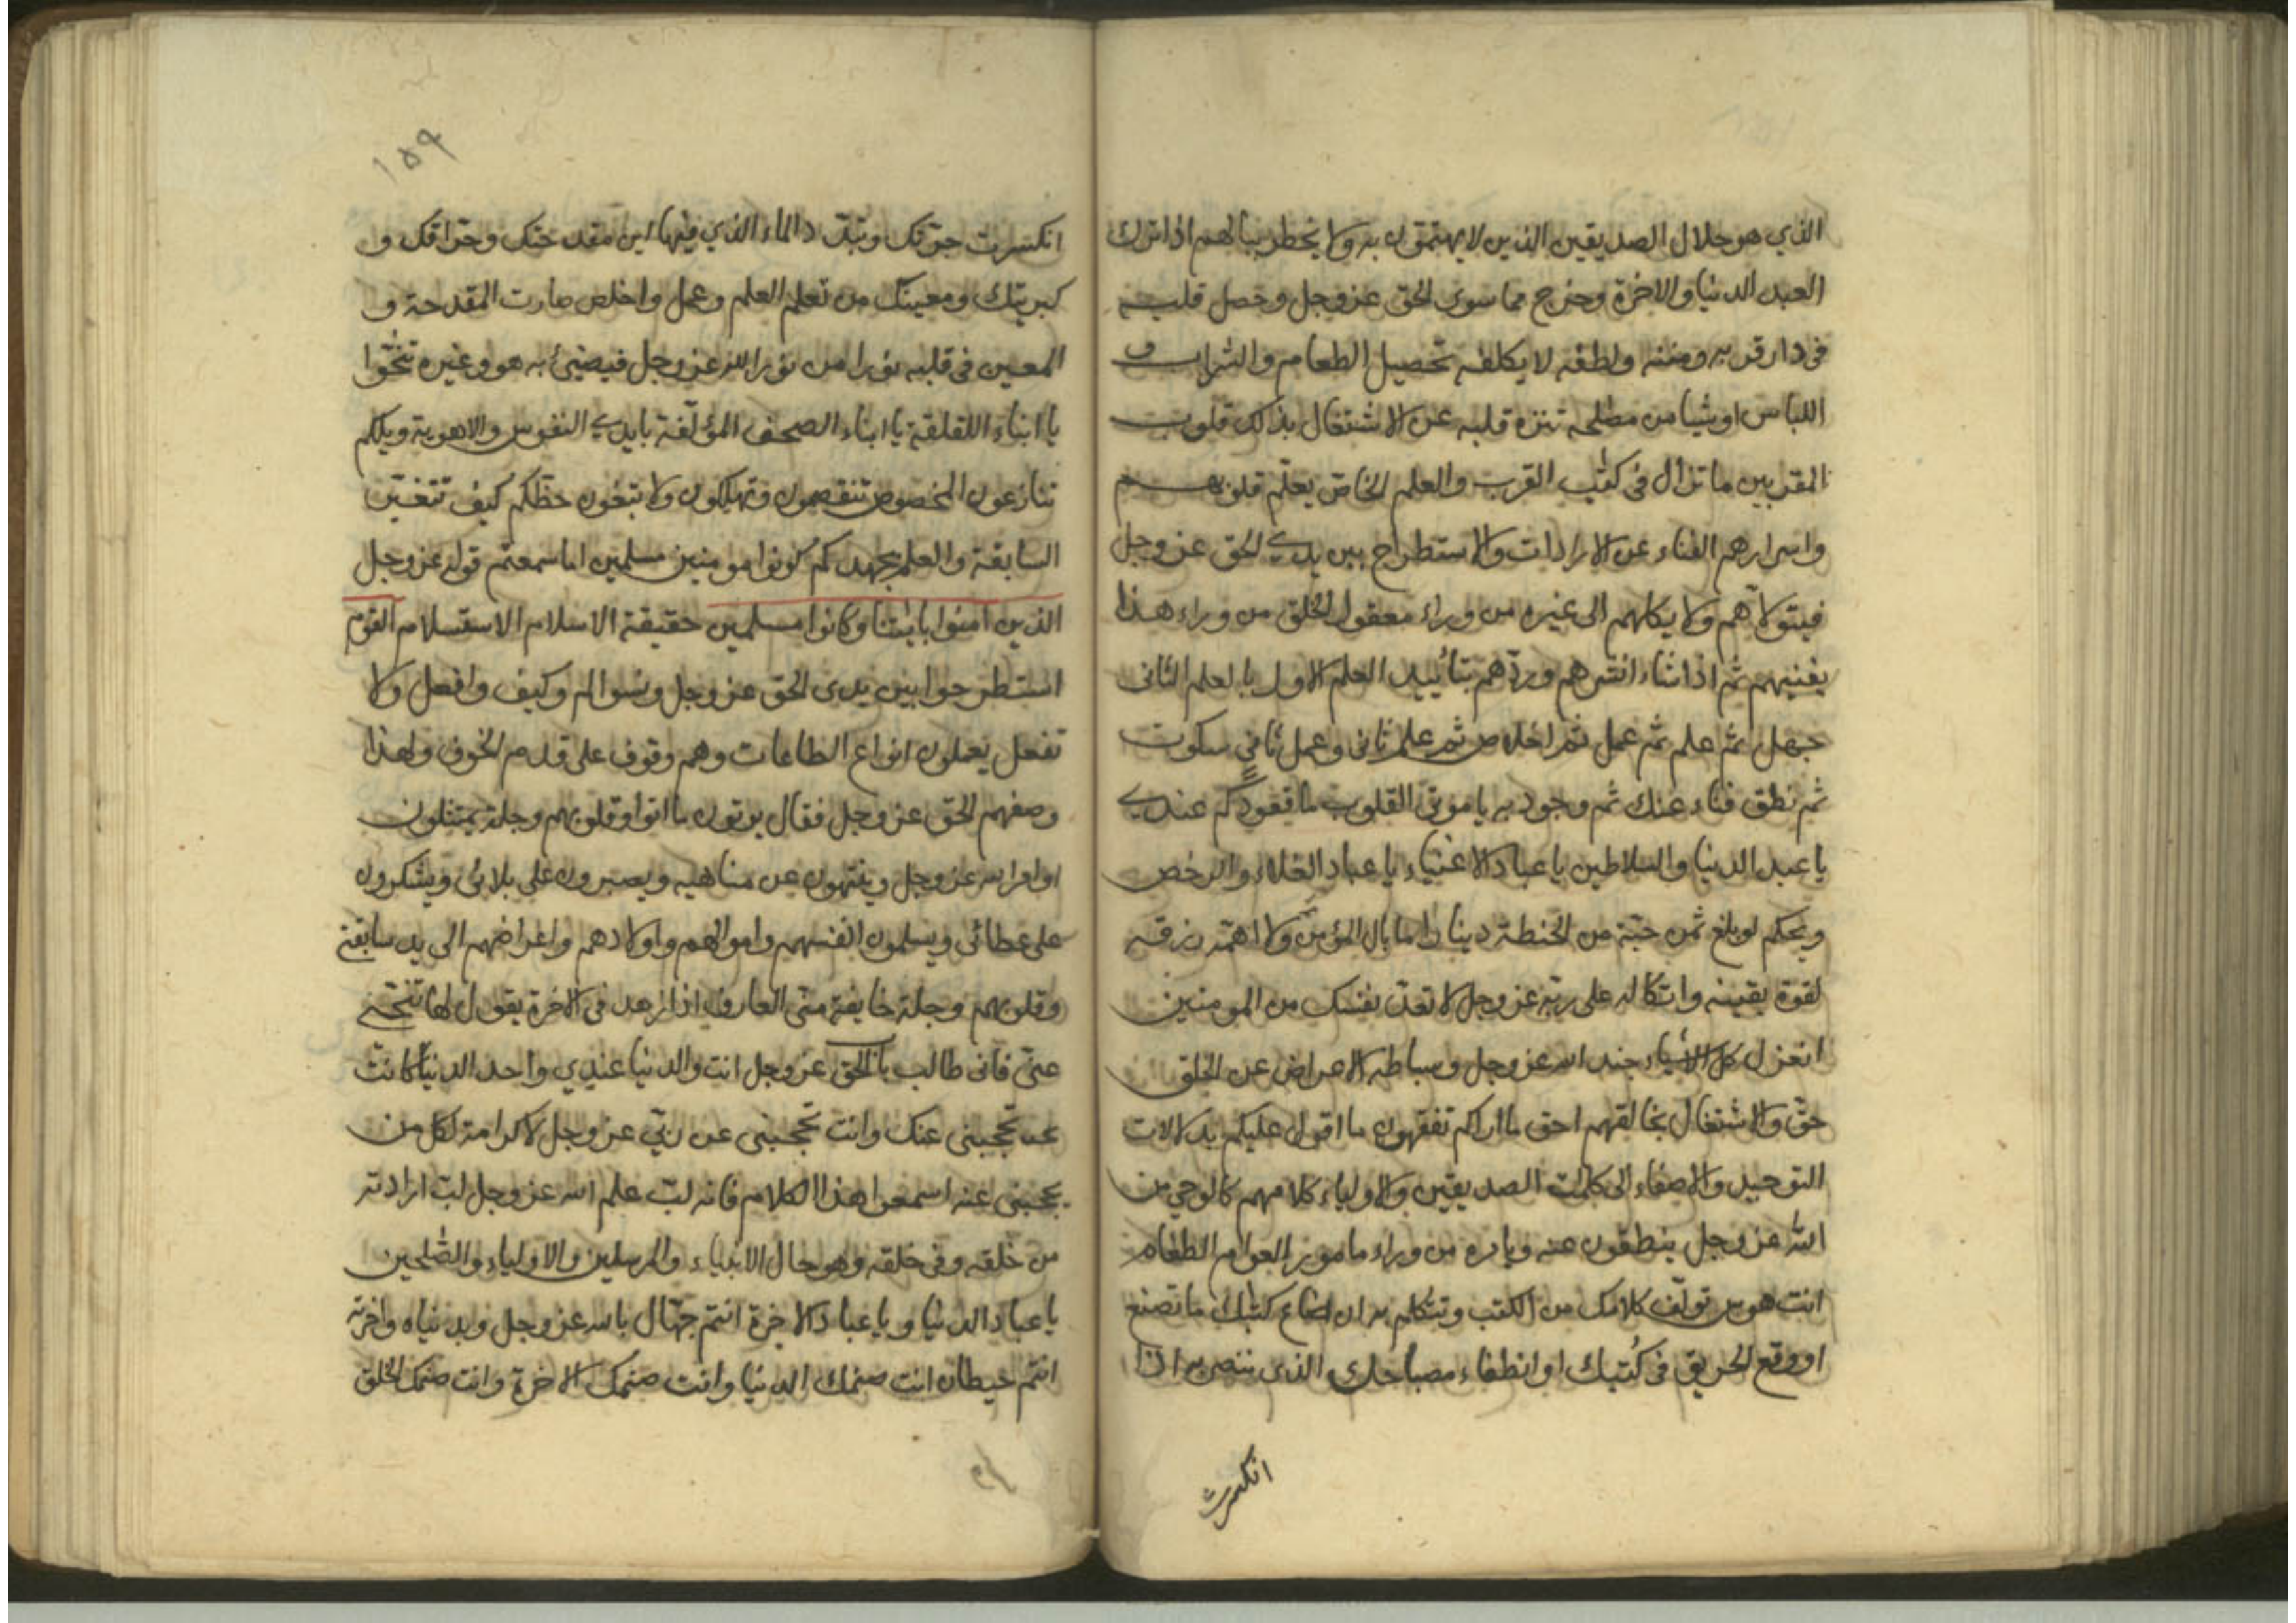 الذي هو حلال الصديقين الذين لا يهتمون به ولا يخطر ببالهم اذا ترك
العبد الدنيا والاخرة وخرج مما سوى الحق عز وجل وحصل قلبه
فى دار قربه ومننه ولطفه لا يكلفه تحصيل الطعام والشراب و
اللباس او شيا من مصلحة تنزه قلبه عن الاشتغال بذلك قلوب
المقربين ما تزال فى كتب القرب والعلم الخاص يعلم قلوبهم
واسرارهم الفناء عن الارادات والاستطراح بين يدي الحق عز وجل
فيتولاهم ولا يكلهم الى غيره من وراء معقول الخلق من وراء هذا
يفنيهم ثم اذا شاء انشرهم وردهم بتأييد العلم الاول بالعلم الثانى
جهل ثم علم ثم عمل ثم اخلاص ثم علم ثانى وعمل ثاني سكوت
ثم نطق فناء عنك ثم وجود به يا موتى القلوب ما قعودكم عندي
يا عبد الدنيا والسلاطين يا عباد الاغنياء يا عباد الغلاء والرخص
ويحكم لو بلغ ثمن حبة من الحنطة دينارا ما بال المؤمن ولا اهمه رزقه
لقوة يقينه واتكاله على ربه عز وجل لا تعد نفسك من المومنين
انعزل كل الاشياء جند الله عز وجل وسباطه الاعراض عن الخلق
حق والاشتغال بخالقهم احق ما اراكم تفقهون ما اقول عليكم بدلالات
التوحيد والاصغاء الى كلمات الصديقين والاولياء كلامهم كالوحي من
الله عز وجل ينطقون عنه وبامره من وراء مامور العوام الطغام
انت هوس تولف كلامك من الكتب وتتكلم به ان ضاع كتبك ما تصنع
او وقع الحريق فى كتبك او انطفاء مصباحك الذى تنصر به اذا
انكسرت
١٥٩
انكسرت جرتك وتبدد الماء الذي فيها اين مقدحتك وحراقك و
كبريتك ومعينك من تعلم العلم وعمل واخلص صارت المقدحة و
المعين فى قلبه نورا من نور الله عز وجل فيضيئ به هو وغيره تنحوا
يا ابناء اللقلقة يا ابناء الصحف المؤلفة بايدي النفوس والاهوية ويلكم
تنازعون المخصوص تنقصمون وتهلكون ولا تبلغون حظكم كيف تتغير
السابقة والعلم بجهدكم كونوا مومنين مسلمين اما سمعتم قوله عز وجل
الذين امنوا باياتنا وكانوا مسلمين حقيقة الاسلام الاستسلام القوم
استطرحوا بين يدى الحق عز وجل ونسوا لم وكيف وافعل ولا
تفعل يعملون انواع الطاعات وهم وقوف على قدم الخوف ولهذا
وصفهم الحق عز وجل فقال يوتون ما اتوا وقلوبهم وجلة يمتثلون
اوامر الله عز وجل وينتهون عن مناهيه ويصبرون على بلائى ويشكرون
على عطائى ويسلمون انفسهم واموالهم واولادهم واعراضهم الى يد سابقة
وقلوبهم وجلة خايفة متى العارف اذا زهد فى الاخرة يقول لها تنحي
عني فانى طالب باب الحق عز وجل انت والدنيا عندي واحد الدنيا كانت
تحجبنى عنك وانت تحجبنى عن ربي عز وجل لا كرامة لكل من
يحجبنى عنه اسمعوا هذا الكلام فانه لب علم الله عز وجل لب ارادته
من خلقه وفى خلقه وهو حال الانبياء والمرسلين والاولياء والصلحين
يا عباد الدنيا ويا عباد الاخرة انتم جهال بالله عز وجل وبدنياه واخرته
انتم حيطان انت صنمك الدنيا وانت صنمك الاخرة وانت صنمك الخلق